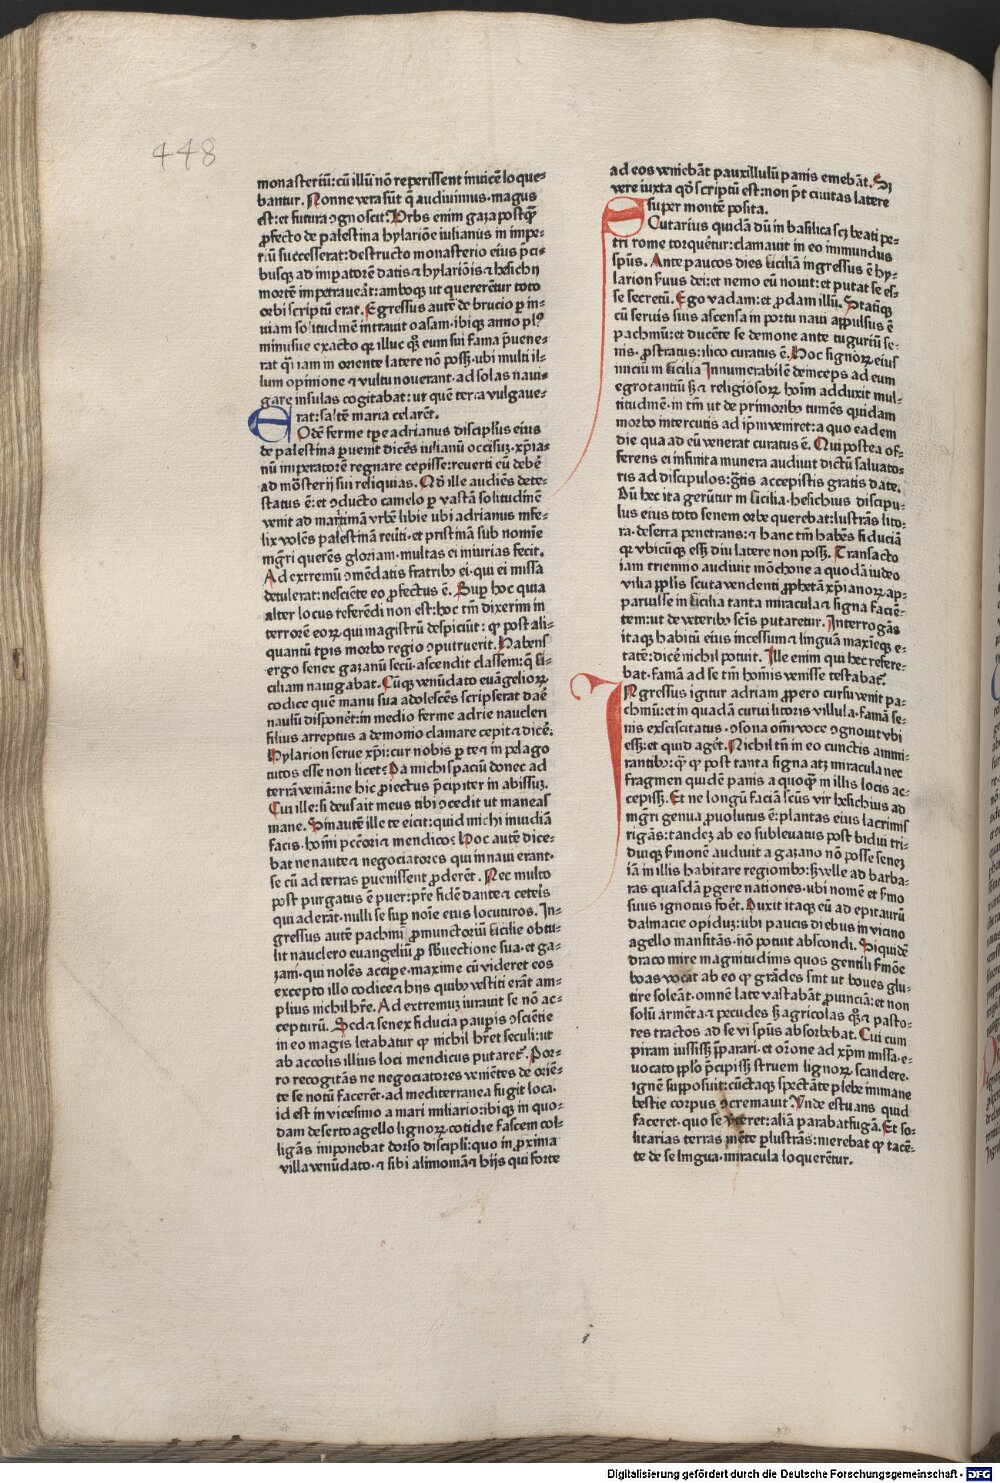 448
monasteriū: cū illū nō reperissent invicē loque⸗
bantur. Nonne vera sūt q̄ audivimus. magus
est: et futura ꝯgnoscit. Urbs enim gaza postꝙ̄
ꝓfecto de palestina hylariōe iulianus in impe⸗
riū successerat: destructo monasterio eius p̄ci⸗
busqꝫ ad impatorē datis ⁊ hylariōis ⁊ hesichij
mortē impetraveāt: amboqꝫ ut quererētur toto
orbi scriptū erat. Egressus autē de brucio ꝑ in⸗
viam solitudinē intravit oasam. ibiqꝫ anno pl⁹
minusve exacto qꝛ illuc qꝫ eum sui fama pͥvene⸗
rat qͣi iam in oriente latere nō possꝫ. ubi multi il⸗
lum opinione ⁊ vultu noverant. ad solas navi⸗
gare insulas cogitabat: ut quē terra vulgave⸗
rat: saltē maria celarēt.
EOdē ferme tꝑe adrianus discipl̄us eius
de palestina ꝑvenit dicēs iulianū occisuꝫ. xp̄ia⸗
nū imperatorē regnare cepisse: reverti eū debē̄
ad mōsterij sui reliquias. Qd̄ ille audiēs dete⸗
status ē: et ꝯducto camelo ꝑ vastā solitudinē
venit ad maritimā urbē libie ubi adrianus infe⸗
lix volēs palestinā revʼti. et pristinā sub nomīe
mgr̄i querēs gloriam. multas ei iniurias fecit.
Ad extremū ꝯmēdatis fratribꝰ ei. qui ei missa
detulerat: nesciēte eo ꝓfectus ē. Suꝑ hoc quia
alter locus referēdi non est: hoc tm̄ dixerim in
terrorē eoꝝ qui magistrū despiciūt: ꝙ post ali⸗
quantū tꝑis morbo regio ꝯputruerit. Habens
ergo senex gazanū secū. ascendit classem: q̄ si⸗
ciliam navigabat. Cūqꝫ venūdato euāgelioꝝ
codice quē manu sua adolescēs scripserat daē
naulū disponēt: in medio ferme adrie naucleri
filius arreptus a demonio clamare cepit ⁊ dicē:
Hylarion serve xp̄i: cur nobis ꝑ te ⁊ in pelago
tutos esse non licet: Da michi spaciū donec ad
terrā veniā: ne hic ꝓiectus p̄cipiter in abissuꝫ.
Cui ille: si deus ait meus tibi ꝯcedit ut maneas
mane. Sin autē ille te eicit: quid michi invidiā
facis. homī pctōri ⁊ mendico: Hoc autē dice⸗
bat ne naute ⁊ negociatores qui in navi erant.
se cū ad terras ꝑvenissent ꝓderēt. Nec multo
post purgatus ē puer: pr̄e fidē dante ⁊ ceteris
qui aderāt. nulli se suꝑ noīe eius locuturos. In⸗
gressus autē pachini ꝓmunctoriū sicilie obtu⸗
lit nauclero euangeliū ꝓ sb̄vectione sua. et ga⸗
zani. qui nolēs accipe. maxime cū videret eos
excepto illo codice ⁊ hijs quibꝰ vestiti erāt am⸗
plius nichil hr̄e. Ad extremuꝫ iuravit se nō ac⸗
cepturū. Sed ⁊ senex fiducia pauꝑis ꝯsciētie
in eo magis letabatur ꝙ nichil hr̄et seculi: ut
ab accolis illius loci mendicus putaret̄. Por⸗
ro recogitās ne negociatores veniētes de oriē⸗
te se notū facerēt. ad mediterranea fugit loca.
id est in vicesimo a mari miliario: ibiqꝫ in quo⸗
dam deserto agello lignoꝝ cotidie fascem col⸗
ligās imponebat dorso discipli: quo in ꝓxima
villa venūdato. ⁊ sibi alimoniā ⁊ hijs qui forte
ad eos veniebāt pauxillulū panis emebāt. Sꝫ
vere iuxta qd̄ scriptū est: non pt̄ civitas latere
super montē posita.
SCutarius quidā dū in basilica scꝫ beati pe⸗
tri rome torquētur: clamavit in eo inmundus
spūs. Ante paucos dies siciliā ingressus ē hy⸗
larion servus dei: et nemo eū novit: et putat se es⸗
se secretū. Ego vadam: et ꝓdam illū. Statīqꝫ
cū servis suis ascensa in portu navi appulsus ē
pachinū: et ducēte se demone ante tuguriū se⸗
nis. ꝓstratus: ilico curatus ē. Hoc signoꝝ eius
iniciū in sicilia Innumerabilē deinceps ad eum
egrotantiū sꝫ ⁊ religiosoꝝ hoīm adduxit mul⸗
titudinē. in tm̄ ut de primoribꝰ tumēs quidam
morbo intercutis ad ip̄m veniret: a quo eadem
die qua ad eū venerat curatus ē. Qui postea of⸗
ferens ei infinita munera audivit dictū salvato⸗
ris ad discipulos: gr̄tis accepistis gratis date.
Dū hec ita gerūtur in sicilia. hesichius discipu⸗
lus eius toto senem orbe querebat: lustrās lito⸗
ra. deserta penetrans: ⁊ hanc tm̄ habēs fiduciā
ꝙ ubicūqꝫ essꝫ diu latere non possꝫ. Transacto
iam triennio audivit mōthone a quodā iudeo
vilia pp̄lis scuta vendenti ꝓphetā xp̄ianoꝝ ap⸗
paruisse in sicilia tanta miracula ⁊ signa faciē⸗
tem: ut de veteribꝰ scīs putaretur. Interrogās
itaqꝫ habitū eius incessum ⁊ linguā maxīeqꝫ e⸗
tatē: dicē nichil potuit. Ille enim qui hec refere⸗
bat. famā ad se tm̄ homīs venisse testabat̄.
INgressus igitur adriam ꝓpero cursu venit pa⸗
chinū: et in quadā curvi litoris villula. famā se⸗
nis exscitatus. ꝯsona om̄i voce ꝯgnovit ubi
essꝫ: et quid agēt. Nichil tn̄ in eo cunctis ammi⸗
rantibꝰ: qͣ ꝙ post tanta signa atꝫ miracula nec
fragmen quidē panis a quoqꝫ in illis locis ac⸗
cepissꝫ. Et ne longū faciā scūs vir hesichius ad
mgr̄i genua ꝓvolutus ē: plantas eius lacrimis
rigās: tandeꝫ ab eo sublevatus post bidui tri⸗
duiqꝫ sermonē audivit a gazano nō posse seneꝫ
iā in illis habitare regionibꝰ: sꝫ velle ad barba⸗
ras quasdā ꝑgere nationes. ubi nomē et sermo
suus ignotus foēt. Duxit itaqꝫ eū ad epitaurū
dalmacie opiduꝫ: ubi paucis diebus in vicino
agello mansitās. nō potuit abscondi. Siquidē
draco mire magnitudinis quos gentili sermōe
boas vocāt ab eo ꝙ grādes sint ut boves glu⸗
tire soleāt. omnē late vastabāt ꝓvinciā: et non
solū armēta ⁊ pecudes sꝫ agricolas qꝫ ⁊ pasto⸗
res tractos ad se vi spūs absorbebat. Cui cum
piram iussissꝫ p̄parari. et or̄one ad xp̄m missa. e⸗
vocato pp̄lo p̄cipissꝫ struem lignoꝝ scandere.
ignē supposuit: cūctaqꝫ spectāte plebe immane
bestie corpus ꝯcremavit. Unde estuans quid
faceret. quo se vʼteret: aliā parabat fugā. Et so⸗
litarias terras mēte ꝑlustrās: merebat ꝙ tacē⸗
te de se lingua. miracula loquerētur.
Digitalisierung gefördert durch die Deutsche Forschungsgemeinschaft - DFG